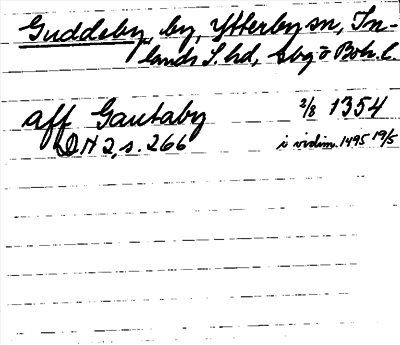 Guddeby, by, Ytterby sn, In-
lands S. hd, Gbg o Boh. l.
aff Gautaby 2/8 1354
DN 2, s. 266 i vidim. 1495 19/5